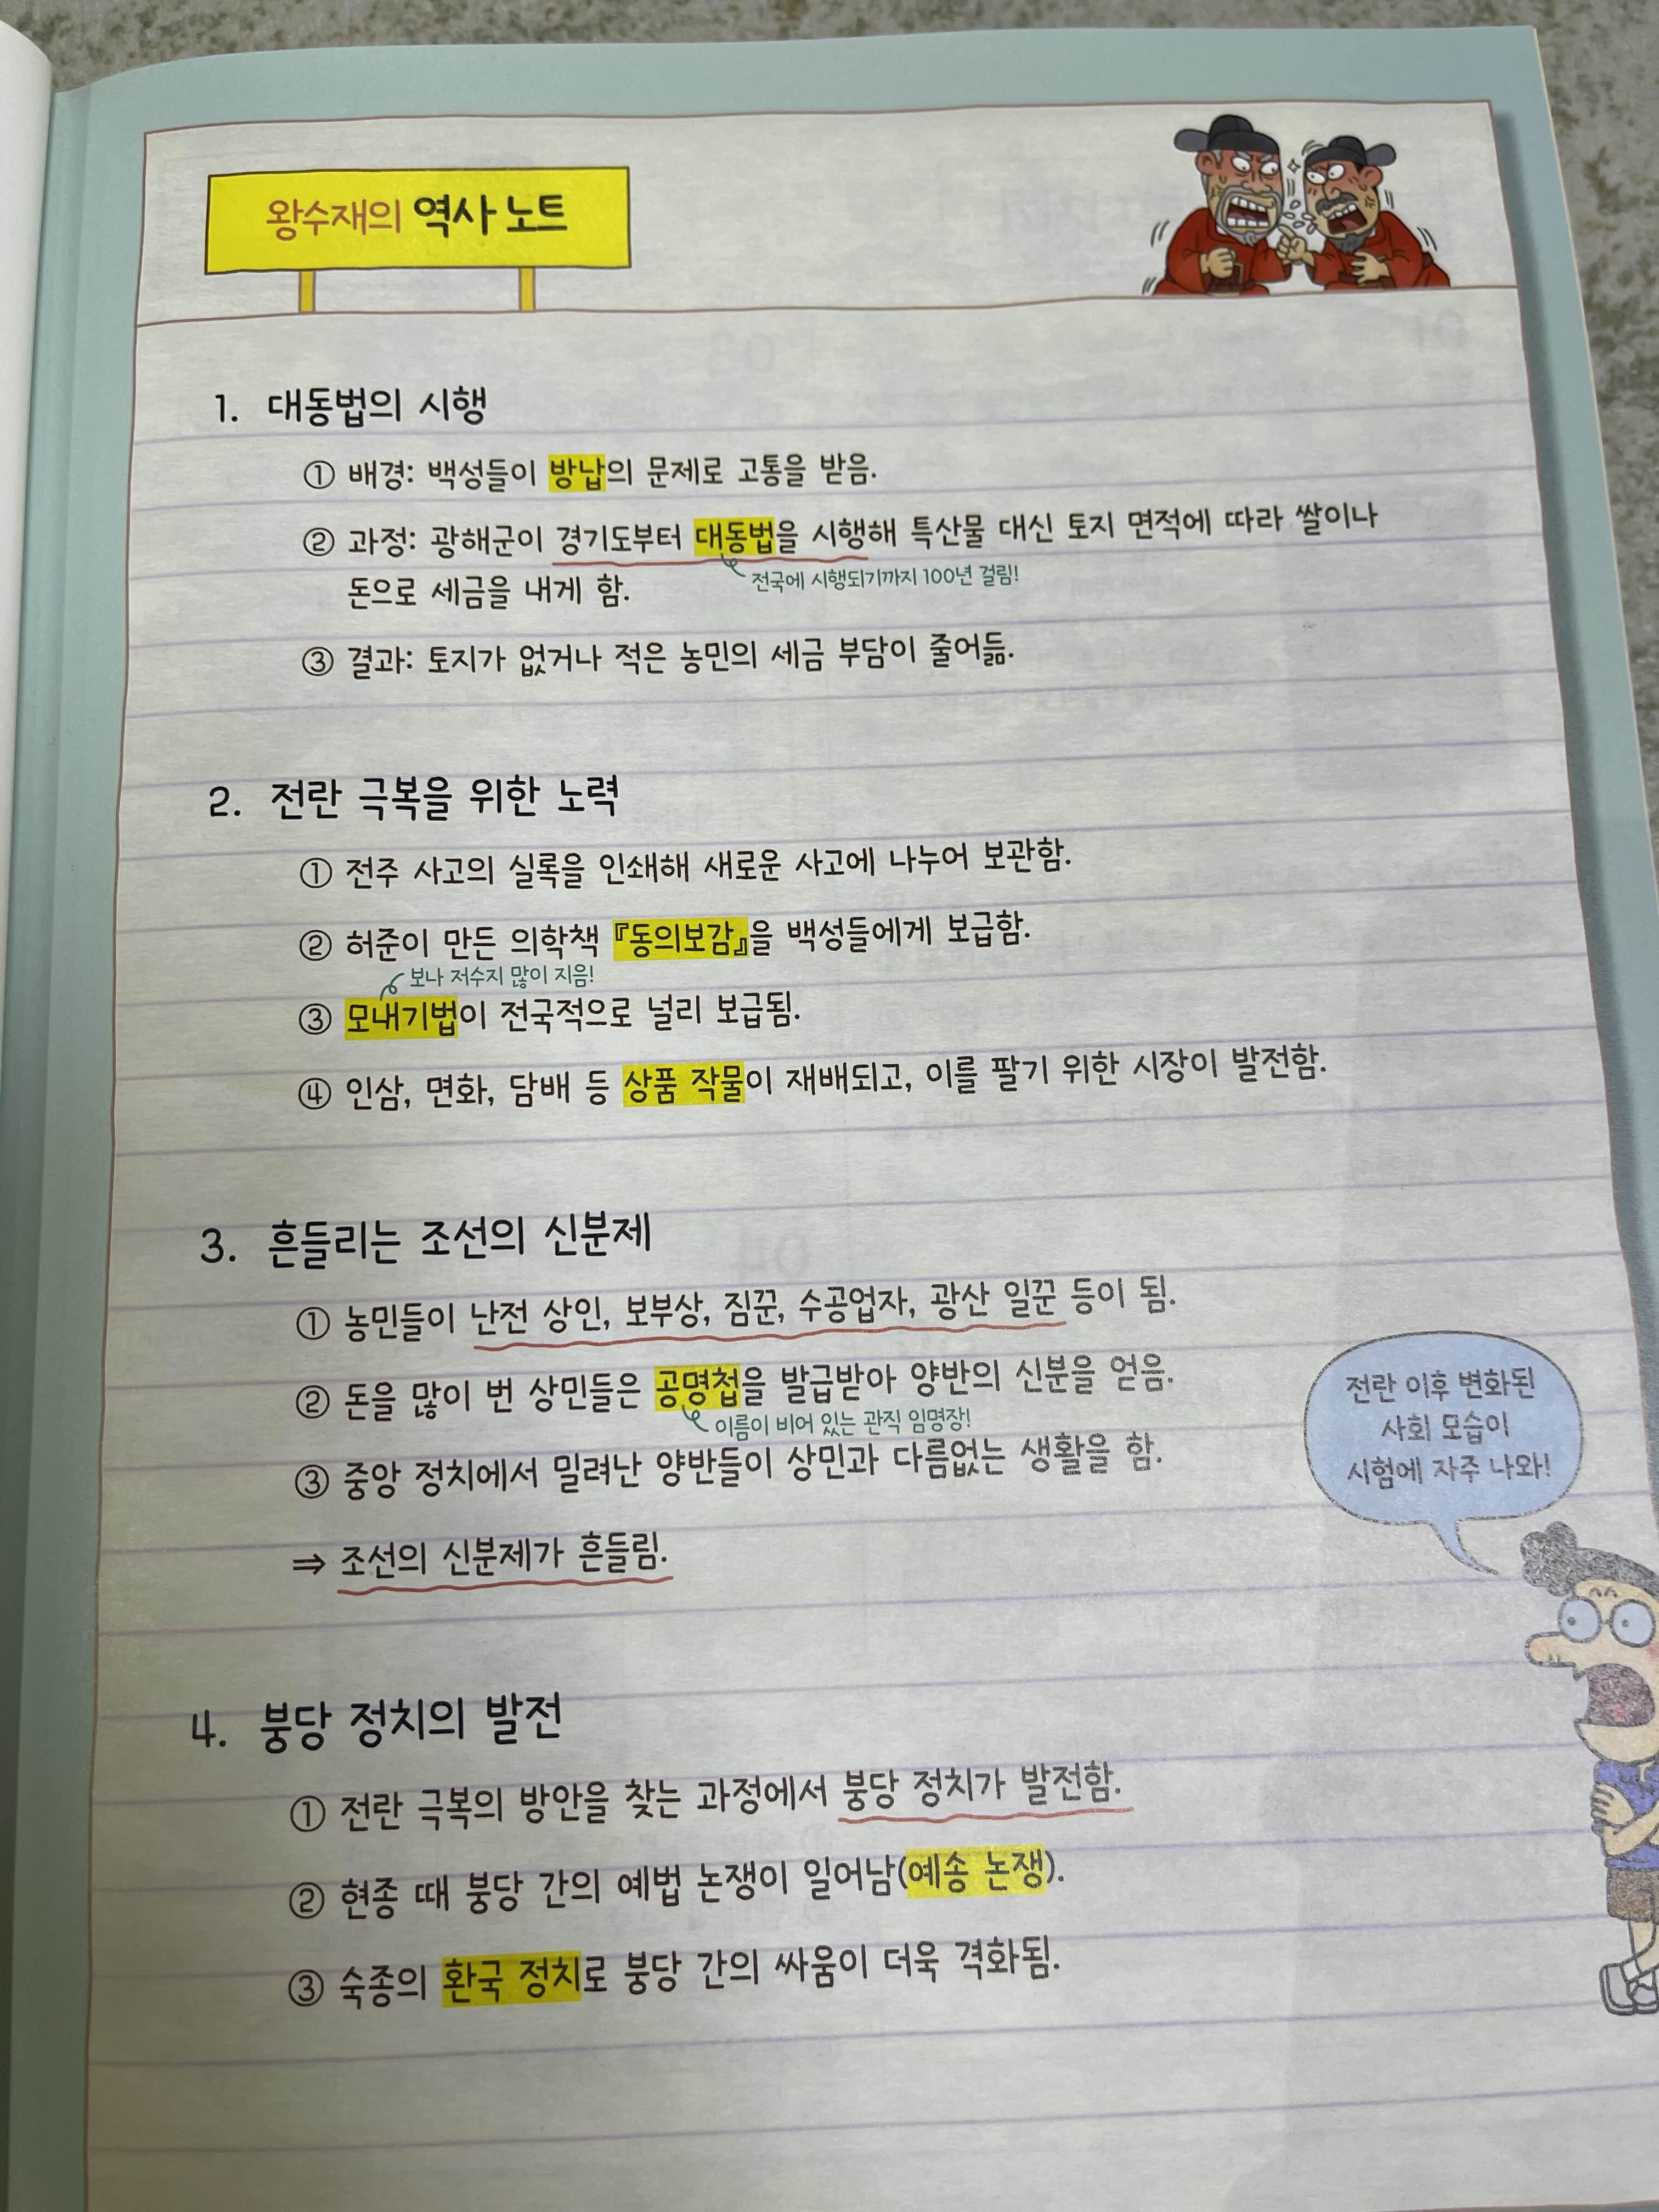 왕수재의 역사 노트
1. 대동법의 시행
① 배경: 백성들이 방납의 문제로 고통을 받음.
② 과정: 광해군이 경기도부터 대동법을 시행해 특산물 대신 토지 면적에 따라 쌀이나
전국에 시행되기까지 100년 걸림!
돈으로 세금을 내게 함.
③ 결과: 토지가 없거나 적은 농민의 세금 부담이 줄어듦.
2. 전란 극복을 위한 노력
① 전주 사고의 실록을 인쇄해 새로운 사고에 나누어 보관함.
② 허준이 만든 의학책 『동의보감』을 백성들에게 보급함.
보나 저수지 많이 지음!
③ 모내기법이 전국적으로 널리 보급됨.
④ 인삼, 면화, 담배 등 상품 작물이 재배되고, 이를 팔기 위한 시장이 발전함.
3. 흔들리는 조선의 신분제
① 농민들이 난전 상인, 보부상, 짐꾼, 수공업자, 광산 일꾼 등이 됨.
② 돈을 많이 번 상민들은 공명첩을 발급받아 양반의 신분을 얻음.
이름이 비어 있는 관직 임명장!
③ 중앙 정치에서 밀려난 양반들이 상민과 다름없는 생활을 함.
⇒ 조선의 신분제가 흔들림.
전란 이후 변화된
사회 모습이
시험에 자주 나와!
4. 붕당 정치의 발전
① 전란 극복의 방안을 찾는 과정에서 붕당 정치가 발전함.
② 현종 때 붕당 간의 예법 논쟁이 일어남(예송 논쟁).
③ 숙종의 환국 정치로 붕당 간의 싸움이 더욱 격화됨.